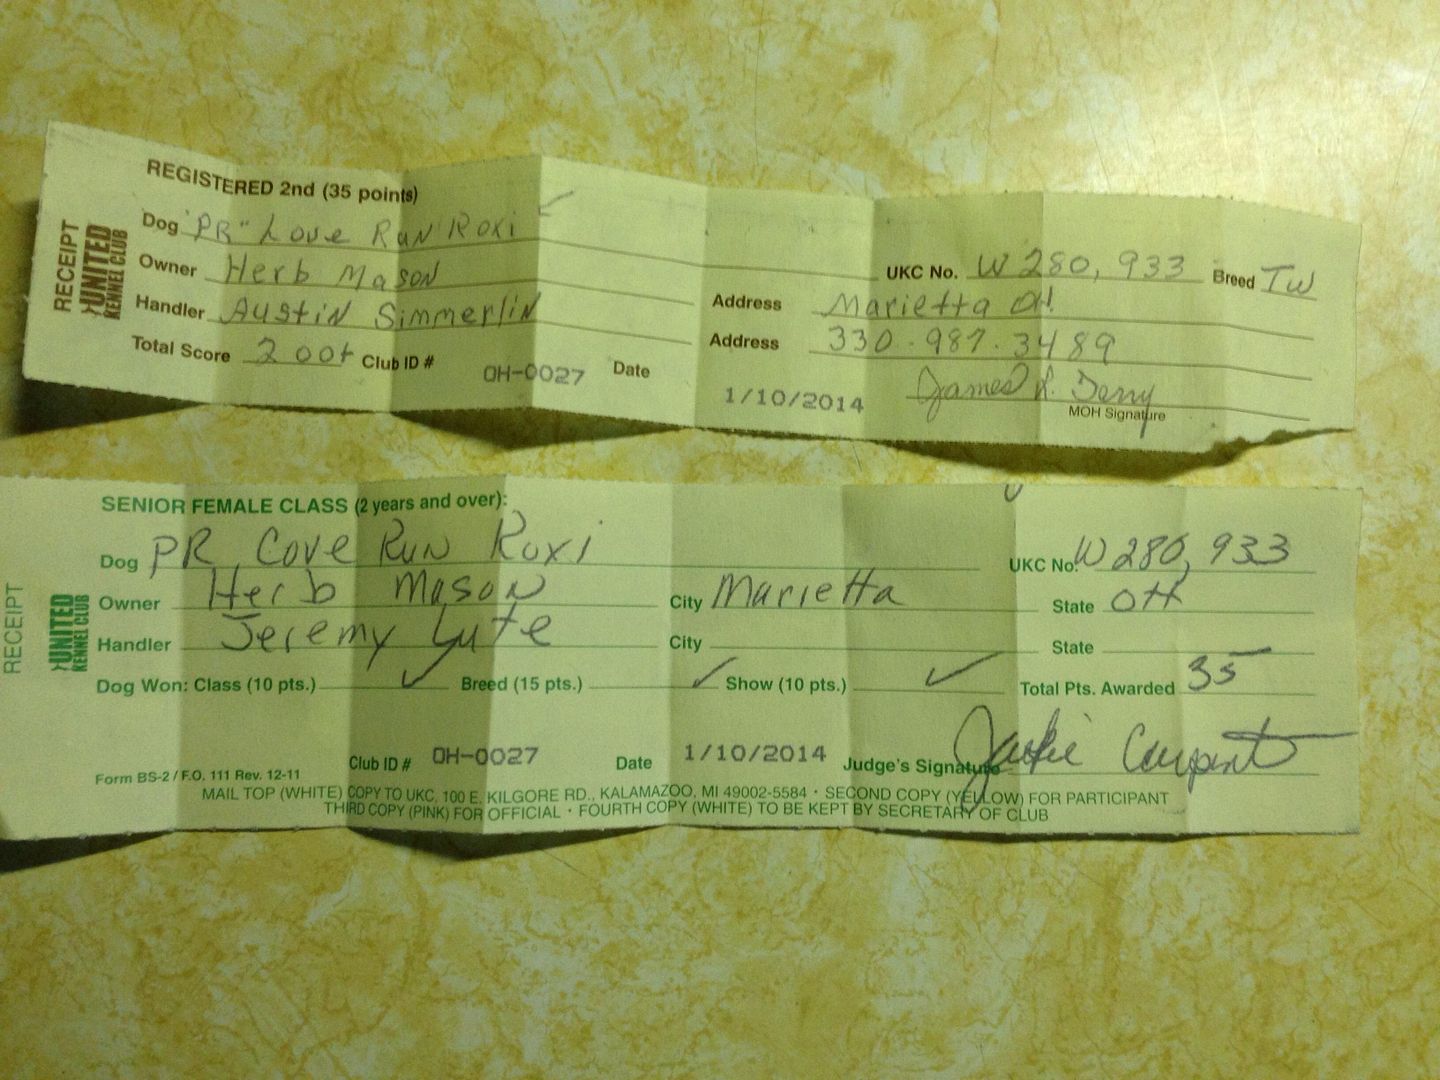 REGISTERED 2nd (35 points)
RECEIPT
UNITED
KENNEL CLUB
Dog "PR" Love Run Roxi
UKC No. W280,933 Breed TW
Owner Herb Mason
Address Marietta OH
Handler Austin Simmerlin
Address 330-987-3489
Total Score 200+ Club ID # OH-0027 Date 1/10/2014
James L. Terry
MOH Signature
SENIOR FEMALE CLASS (2 years and over):
RECEIPT
UNITED
KENNEL CLUB
Dog PR Cove Run Roxi UKC No. W280,933
Owner Herb Mason City Marietta State OH
Handler Jeremy Lute City State
Dog Won: Class (10 pts.) ✓ Breed (15 pts.) ✓ Show (10 pts.) ✓ Total Pts. Awarded 35
Form BS-2 / F.O. 111 Rev. 12-11 Club ID # OH-0027 Date 1/10/2014 Judge's Signature Jackie
MAIL TOP (WHITE) COPY TO UKC, 100 E. KILGORE RD., KALAMAZOO, MI 49002-5584 • SECOND COPY (YELLOW) FOR PARTICIPANT
THIRD COPY (PINK) FOR OFFICIAL • FOURTH COPY (WHITE) TO BE KEPT BY SECRETARY OF CLUB